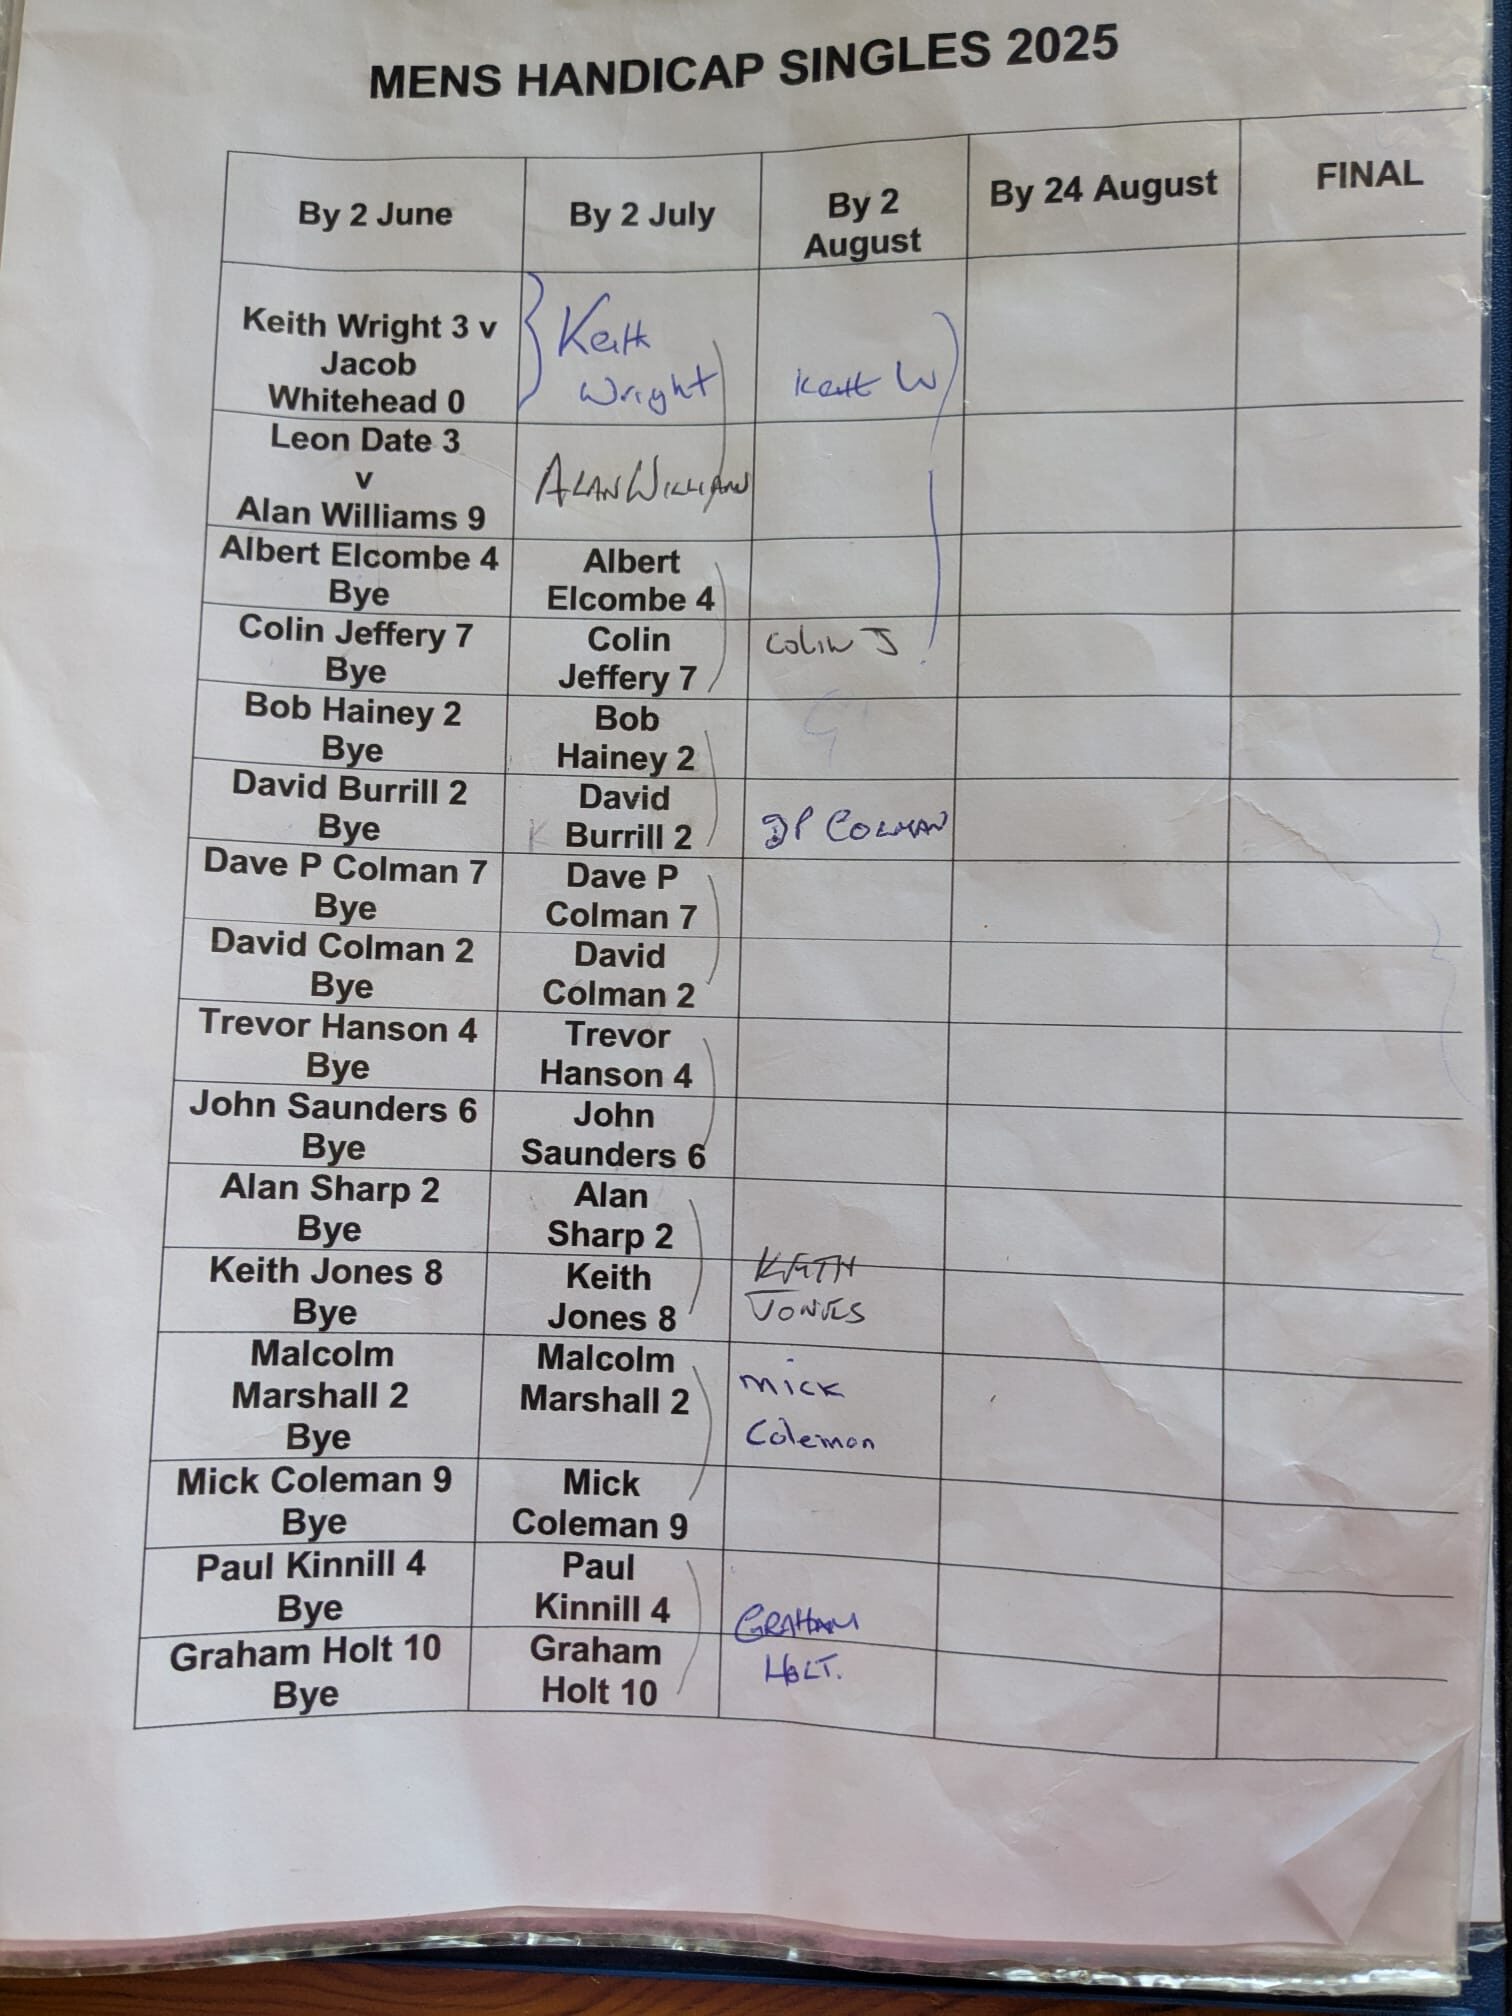 MENS HANDICAP SINGLES 2025
By 2 June
By 2 July
By 2
August
By 24 August
FINAL
Keith Wright 3 v
Jacob
Whitehead 0
Keith
Wright
Keith W
Leon Date 3
v
Alan Williams 9
ALAN WILLIAMS
Albert Elcombe 4
Bye
Albert
Elcombe 4
Colin Jeffery 7
Bye
Colin
Jeffery 7
Colin J
Bob Hainey 2
Bye
Bob
Hainey 2
David Burrill 2
Bye
David
Burrill 2
DP COLMAN
Dave P Colman 7
Bye
Dave P
Colman 7
David Colman 2
Bye
David
Colman 2
Trevor Hanson 4
Bye
Trevor
Hanson 4
John Saunders 6
Bye
John
Saunders 6
Alan Sharp 2
Bye
Alan
Sharp 2
Keith Jones 8
Bye
Keith
Jones 8
KEITH
JONES
Malcolm
Marshall 2
Bye
Malcolm
Marshall 2
Mick
Coleman
Mick Coleman 9
Bye
Mick
Coleman 9
Paul Kinnill 4
Bye
Paul
Kinnill 4
GRAHAM
HOLT.
Graham Holt 10
Bye
Graham
Holt 10